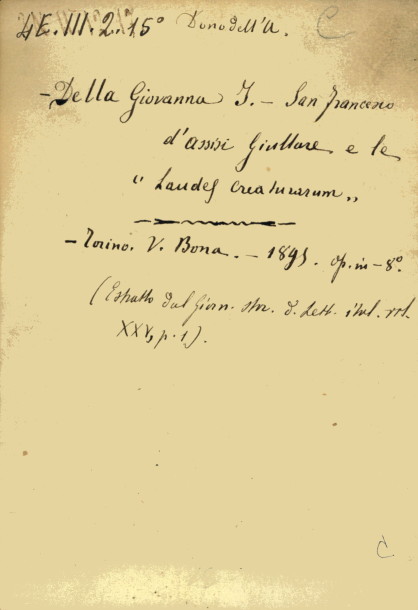 4E.III.2.15° Dono dell'A. C
- Della Giovanna I. - San Francesco
d'assisi Giullare e le
"Laudes Creaturarum"
- Torino. V. Bona. - 1895. op. in - 8°.
(Estratto dal Giorn. stor. d. Lett. ital. vol.
XXV, p. 1).
C